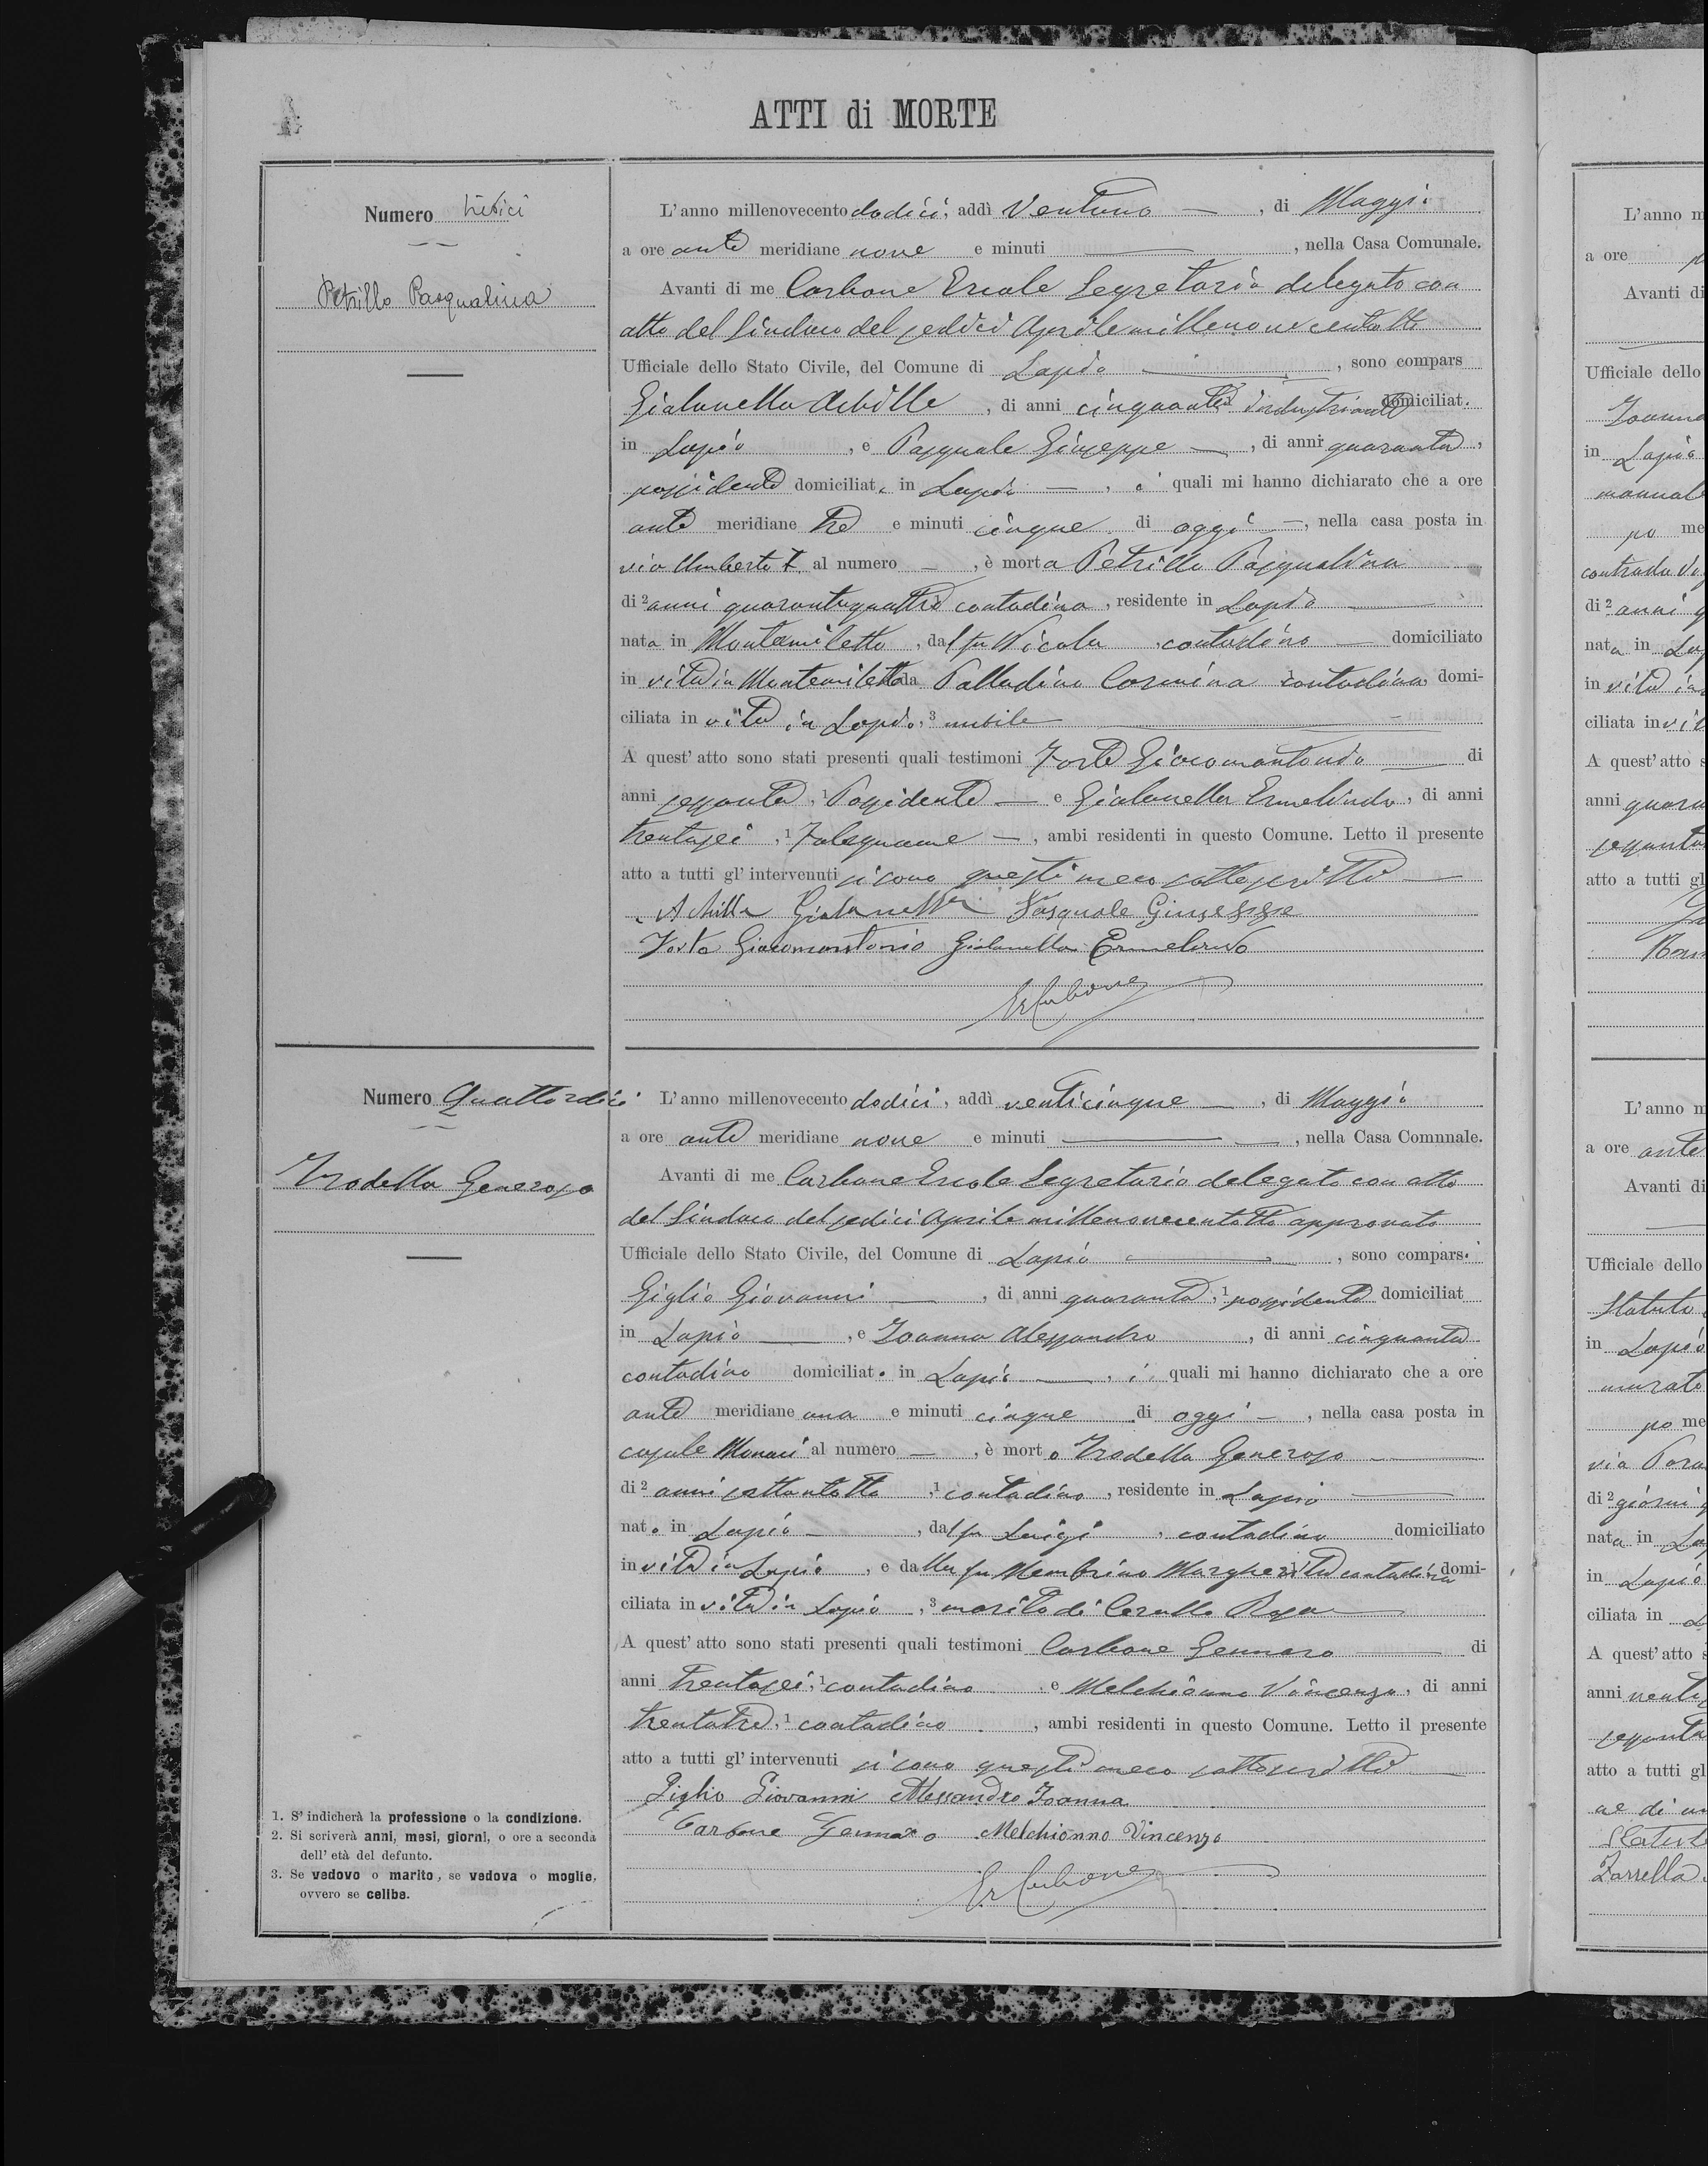 4
ATTI di MORTE
Numero tredici
Petrillo Pasqualina
L'anno millenovecento dodici, addì ventuno —, di Maggio
a ore ante meridiane nove e minuti —, nella Casa Comunale.
Avanti di me Carbone Ercole Segretario delegato con
atto del Sindaco del sedici Aprile millenovecentotto
Ufficiale dello Stato Civile, del Comune di Lapio —, sono compars
Gialanella Achille, di anni cinquanta industriante domiciliat.
in Lapio, e Pasquale Giuseppe —, di anni quaranta,
possidente domiciliat. in Lapio —, i quali mi hanno dichiarato che a ore
ante meridiane tre e minuti cinque di oggi —, nella casa posta in
via Umberto I. al numero —, è morta Petrillo Pasqualina
di 2 anni quarantaquattro contadina, residente in Lapio —
nata in Montemiletto, dal fu Nicola, contadino — domiciliato
in vita in Montemiletto da Palladino Carmina 1 contadina domi-
ciliata in vita in Lapio, 3 nubile —
A quest'atto sono stati presenti quali testimoni Forte Giacomantonio — di
anni sessanta, 1 Possidente — e Gialanella Ermelindo, di anni
trentasei, 1 Falegname —, ambi residenti in questo Comune. Letto il presente
atto a tutti gl'intervenuti si sono questi meco sottoscritti —
Achille Gialanella Pasquale Giuseppe
Forte Giacomantonio Gialanella Ermelindo
Er Carbone
Numero Quattordici
Trodella Generoso
L'anno millenovecento dodici, addì venticinque —, di Maggio
a ore ante meridiane nove e minuti —, nella Casa Comnnale.
Avanti di me Carbone Ercole Segretario delegato con atto
del Sindaco del sedici Aprile millenovecentotto approvato
Ufficiale dello Stato Civile, del Comune di Lapio —, sono compars.
Giglio Giovanni —, di anni quaranta, 1 possidente domiciliat
in Lapio —, e Joanna Alessandro, di anni cinquanta
contadino domiciliat. in Lapio —, i. quali mi hanno dichiarato che a ore
ante meridiane una e minuti cinque di oggi —, nella casa posta in
casale Monaci al numero —, è morto Trodella Generoso —
di 2 anni settantotto, 1 contadino, residente in Lapio —
nato in Lapio —, dal fu Luigi, contadino domiciliato
in vita in Lapio, e dalla fu Membrino Margherita contadina domi-
ciliata in vita in Lapio, 3 marito di Carullo Rosa —
A quest'atto sono stati presenti quali testimoni Carbone Gennaro — di
anni trentasei, 1 contadino, e Melchionno Vincenzo, di anni
trentatre, 1 contadino, ambi residenti in questo Comune. Letto il presente
atto a tutti gl'intervenuti si sono questi meco sottoscritti —
Giglio Giovanni Alessandro Joanna
Carbone Gennaro Melchionno Vincenzo
Er Carbone
1. S'indicherà la professione o la condizione.
2. Si scriverà anni, mesi, giorni, o ore a seconda
dell'età del defunto.
3. Se vedovo o marito, se vedova o moglie,
ovvero se celibe.
L'anno m
a ore
Avanti di
Ufficiale dello
Joanna
in Lapio
manual
po me
contrada
di 2 anni q
nata in La
in vita in
ciliata in vit
A quest'atto s
anni quara
sessanta
atto a tutti gl
L'anno m
a ore ante
Avanti di
Ufficiale dello
Statuto
in Lapio
murato
po me
via
di 2 giorni
nata in La
in Lapio
ciliata in L
A quest'atto s
anni venti
sessanta
atto a tutti gl
Zarrella